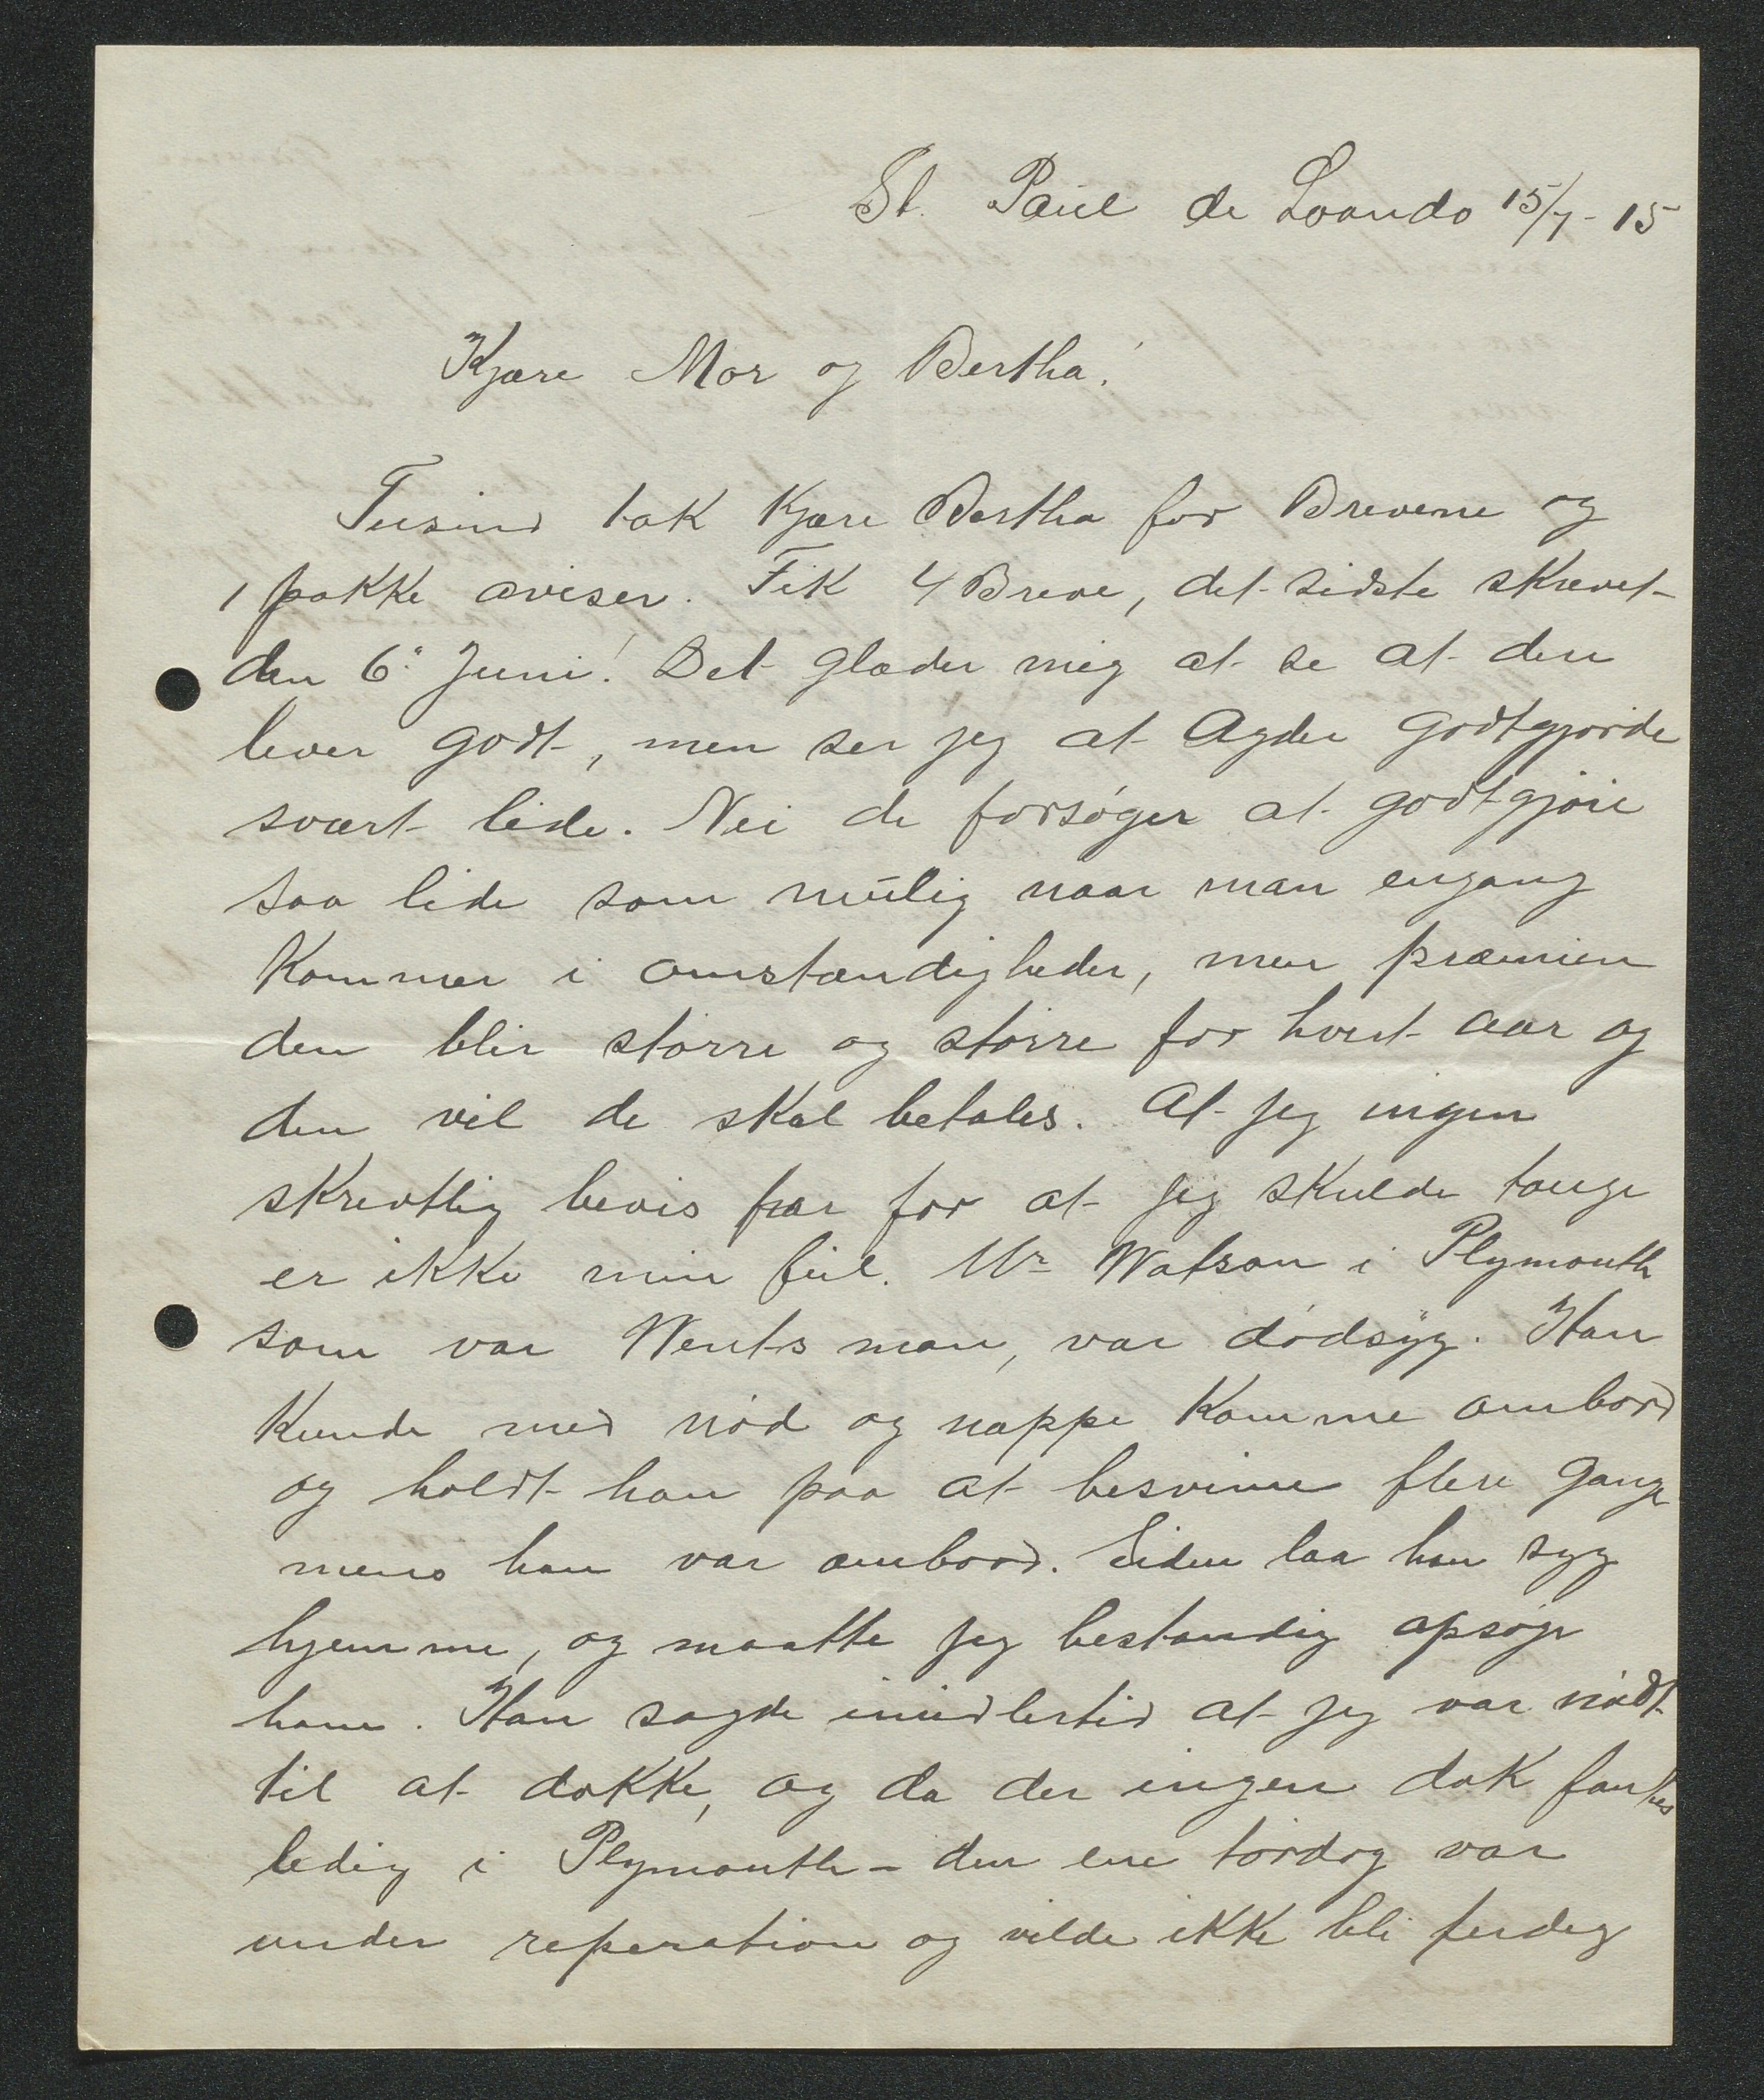 St. Paul de Loando 15/7-15
Kjære Mor og Bertha!
Tusind tak Kjære Bertha for Brevene og
1 pakke aviser. Fik 4 Breve, det sidste skrevet
den 6: Juni! Det glæder mig at se at den
lever godt, men ser jeg at Agder godtgjorde
svært lide. Nei de forsøger at godtgjøre
saa lide som mulig naar man engang
kommer i omstændigheder, men præmien
den blir større og større for hvert aar og
den vil de skal betales. At jeg ingen
skrevtlig bevis har for at jeg skulde
er ikke min feil. Mr Watson i Plymouth
som var Wents man, var dødsyg. Han
kunde med nød og nappe komme ombord
og holdt han paa at besvime flere gange
mens han var ombord. Siden laa han syg
hjemme, og maatte jeg bestandig opsøge
ham. Han sagde imidlertid at jeg var nødt
til at dokke, og da der ingen dok fantes
ledig i Plymouth - den ene tørdog var
under reperation og vilde ikke bli ferdig